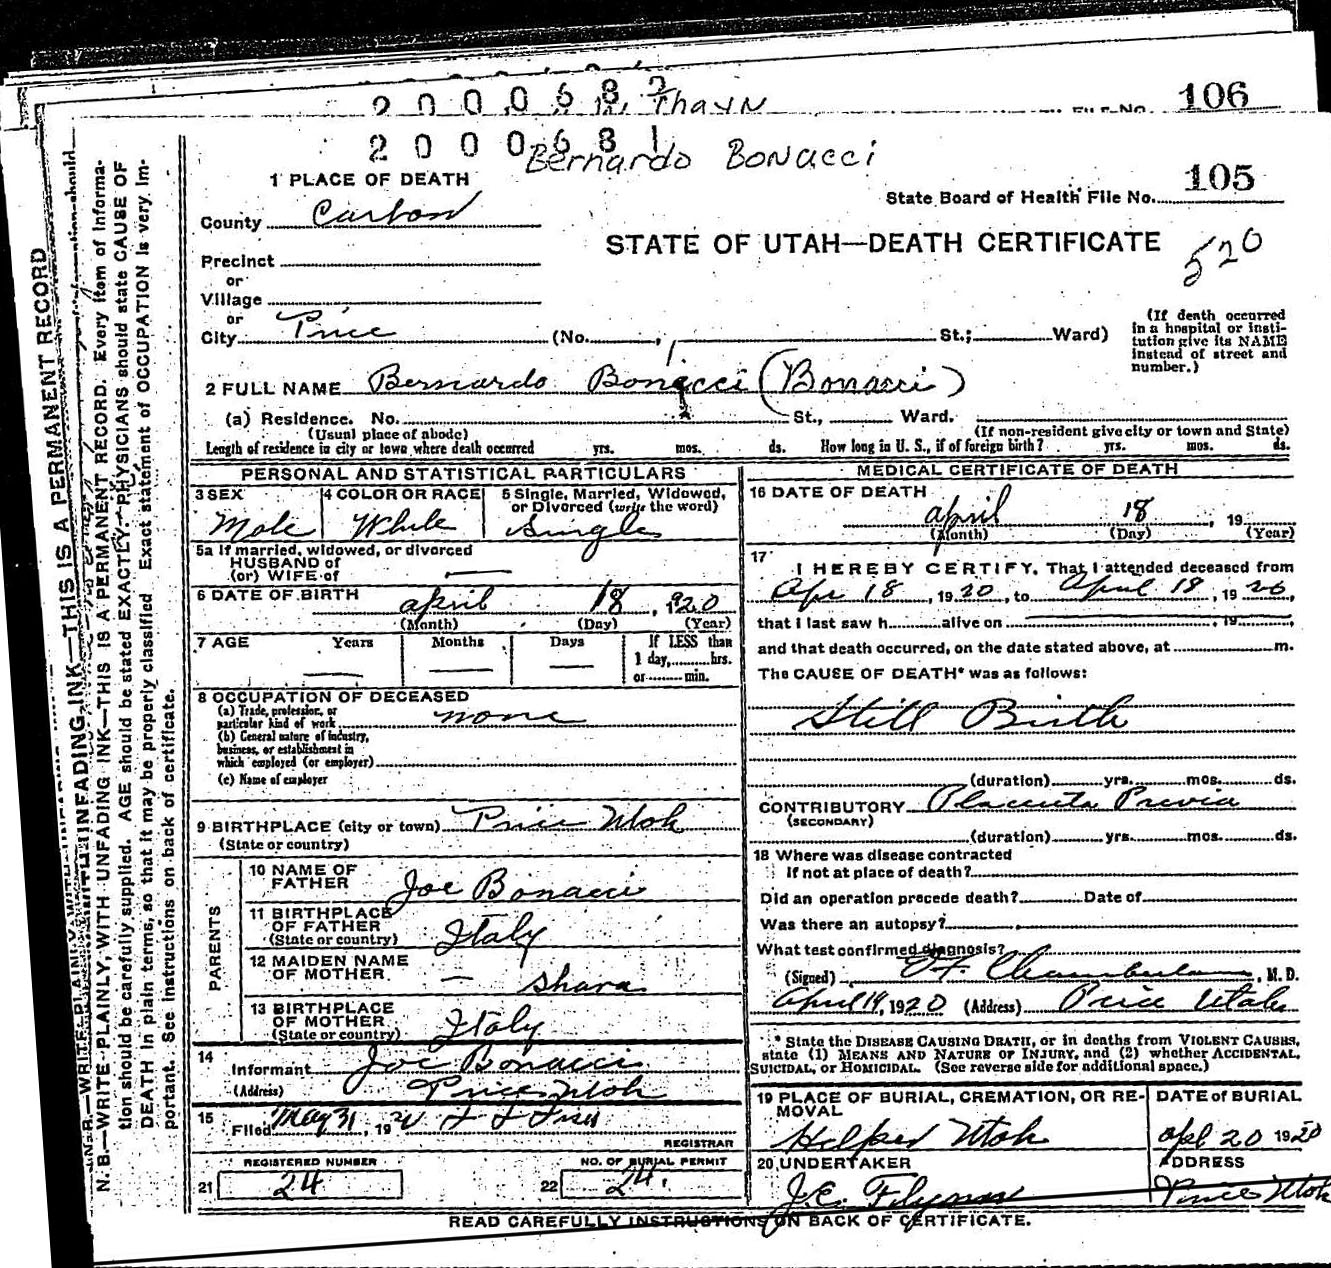 2 0 0 0 6 8 2
Thayn
FILE No. 106
2 0 0 0 6 8 1
Bernardo Bonacci
1 PLACE OF DEATH
105
State Board of Health File No.
County Carbon
STATE OF UTAH—DEATH CERTIFICATE
520
Precinct
or
Village
or
City Price (No. , St.; Ward)
(If death occurred in a hospital or insti-
tution give its NAME
instead of street and
number.)
2 FULL NAME Bernardo Bonacci (Bonacci)
(a) Residence. No. St., Ward.
(Usual place of abode) (If non-resident give city or town and State)
Length of residence in city or town where death occurred yrs. mos. ds. How long in U. S., if of foreign birth? yrs. mos. ds.
PERSONAL AND STATISTICAL PARTICULARS
3 SEX
Male
4 COLOR OR RACE
White
5 Single, Married, Widowed,
or Divorced (write the word)
Single
5a If married, widowed, or divorced
HUSBAND of
(or) WIFE of —
6 DATE OF BIRTH
april 18, 1920
(Month) (Day) (Year)
7 AGE Years Months Days If LESS than
1 day, hrs.
or min.
8 OCCUPATION OF DECEASED
(a) Trade, profession, or
particular kind of work none
(b) General nature of industry,
business, or establishment in
which employed (or employer)
(c) Name of employer
9 BIRTHPLACE (city or town) Price Utah
(State or country)
PARENTS
10 NAME OF
FATHER Joe Bonacci
11 BIRTHPLACE
OF FATHER
(State or country) Italy
12 MAIDEN NAME
OF MOTHER — Shara
13 BIRTHPLACE
OF MOTHER
(State or country) Italy
14
Informant Joe Bonacci
(Address) Price Utah
15
Filed May 31, 19
REGISTRAR
REGISTERED NUMBER
21 24
NO. OF BURIAL PERMIT
22 24.
MEDICAL CERTIFICATE OF DEATH
16 DATE OF DEATH
april 18, 19
(Month) (Day) (Year)
17
I HEREBY CERTIFY, That I attended deceased from
Apr 18, 1920, to April 18, 1920,
that I last saw h alive on , 19 ,
and that death occurred, on the date stated above, at m.
The CAUSE OF DEATH* was as follows:
Still Birth
(duration) yrs. mos. ds.
CONTRIBUTORY Placenta Previa
(SECONDARY)
(duration) yrs. mos. ds.
18 Where was disease contracted
If not at place of death?
Did an operation precede death? Date of
Was there an autopsy?
What test confirmed diagnosis?
(Signed) Chamberlain, M. D.
april 19, 1920 (Address) Price Utah
* State the DISEASE CAUSING DEATH, or in deaths from VIOLENT CAUSES,
state (1) MEANS AND NATURE OF INJURY, and (2) whether ACCIDENTAL,
SUICIDAL, or HOMICIDAL. (See reverse side for additional space.)
19 PLACE OF BURIAL, CREMATION, OR RE-
MOVAL
Helper Utah
DATE of BURIAL
apl 20 1920
20 UNDERTAKER
J.E. Flynn
ADDRESS
Price Utah
READ CAREFULLY INSTRUCTIONS ON BACK OF CERTIFICATE.
WITH UNFADING INK—THIS IS A PERMANENT RECORD
N. B.—WRITE PLAINLY, WITH UNFADING INK—THIS IS A PERMANENT RECORD. Every item of informa-
tion should be carefully supplied. AGE should be stated EXACTLY. PHYSICIANS should state CAUSE OF
DEATH in plain terms, so that it may be properly classified. Exact statement of OCCUPATION is very im-
portant. See instructions on back of certificate.